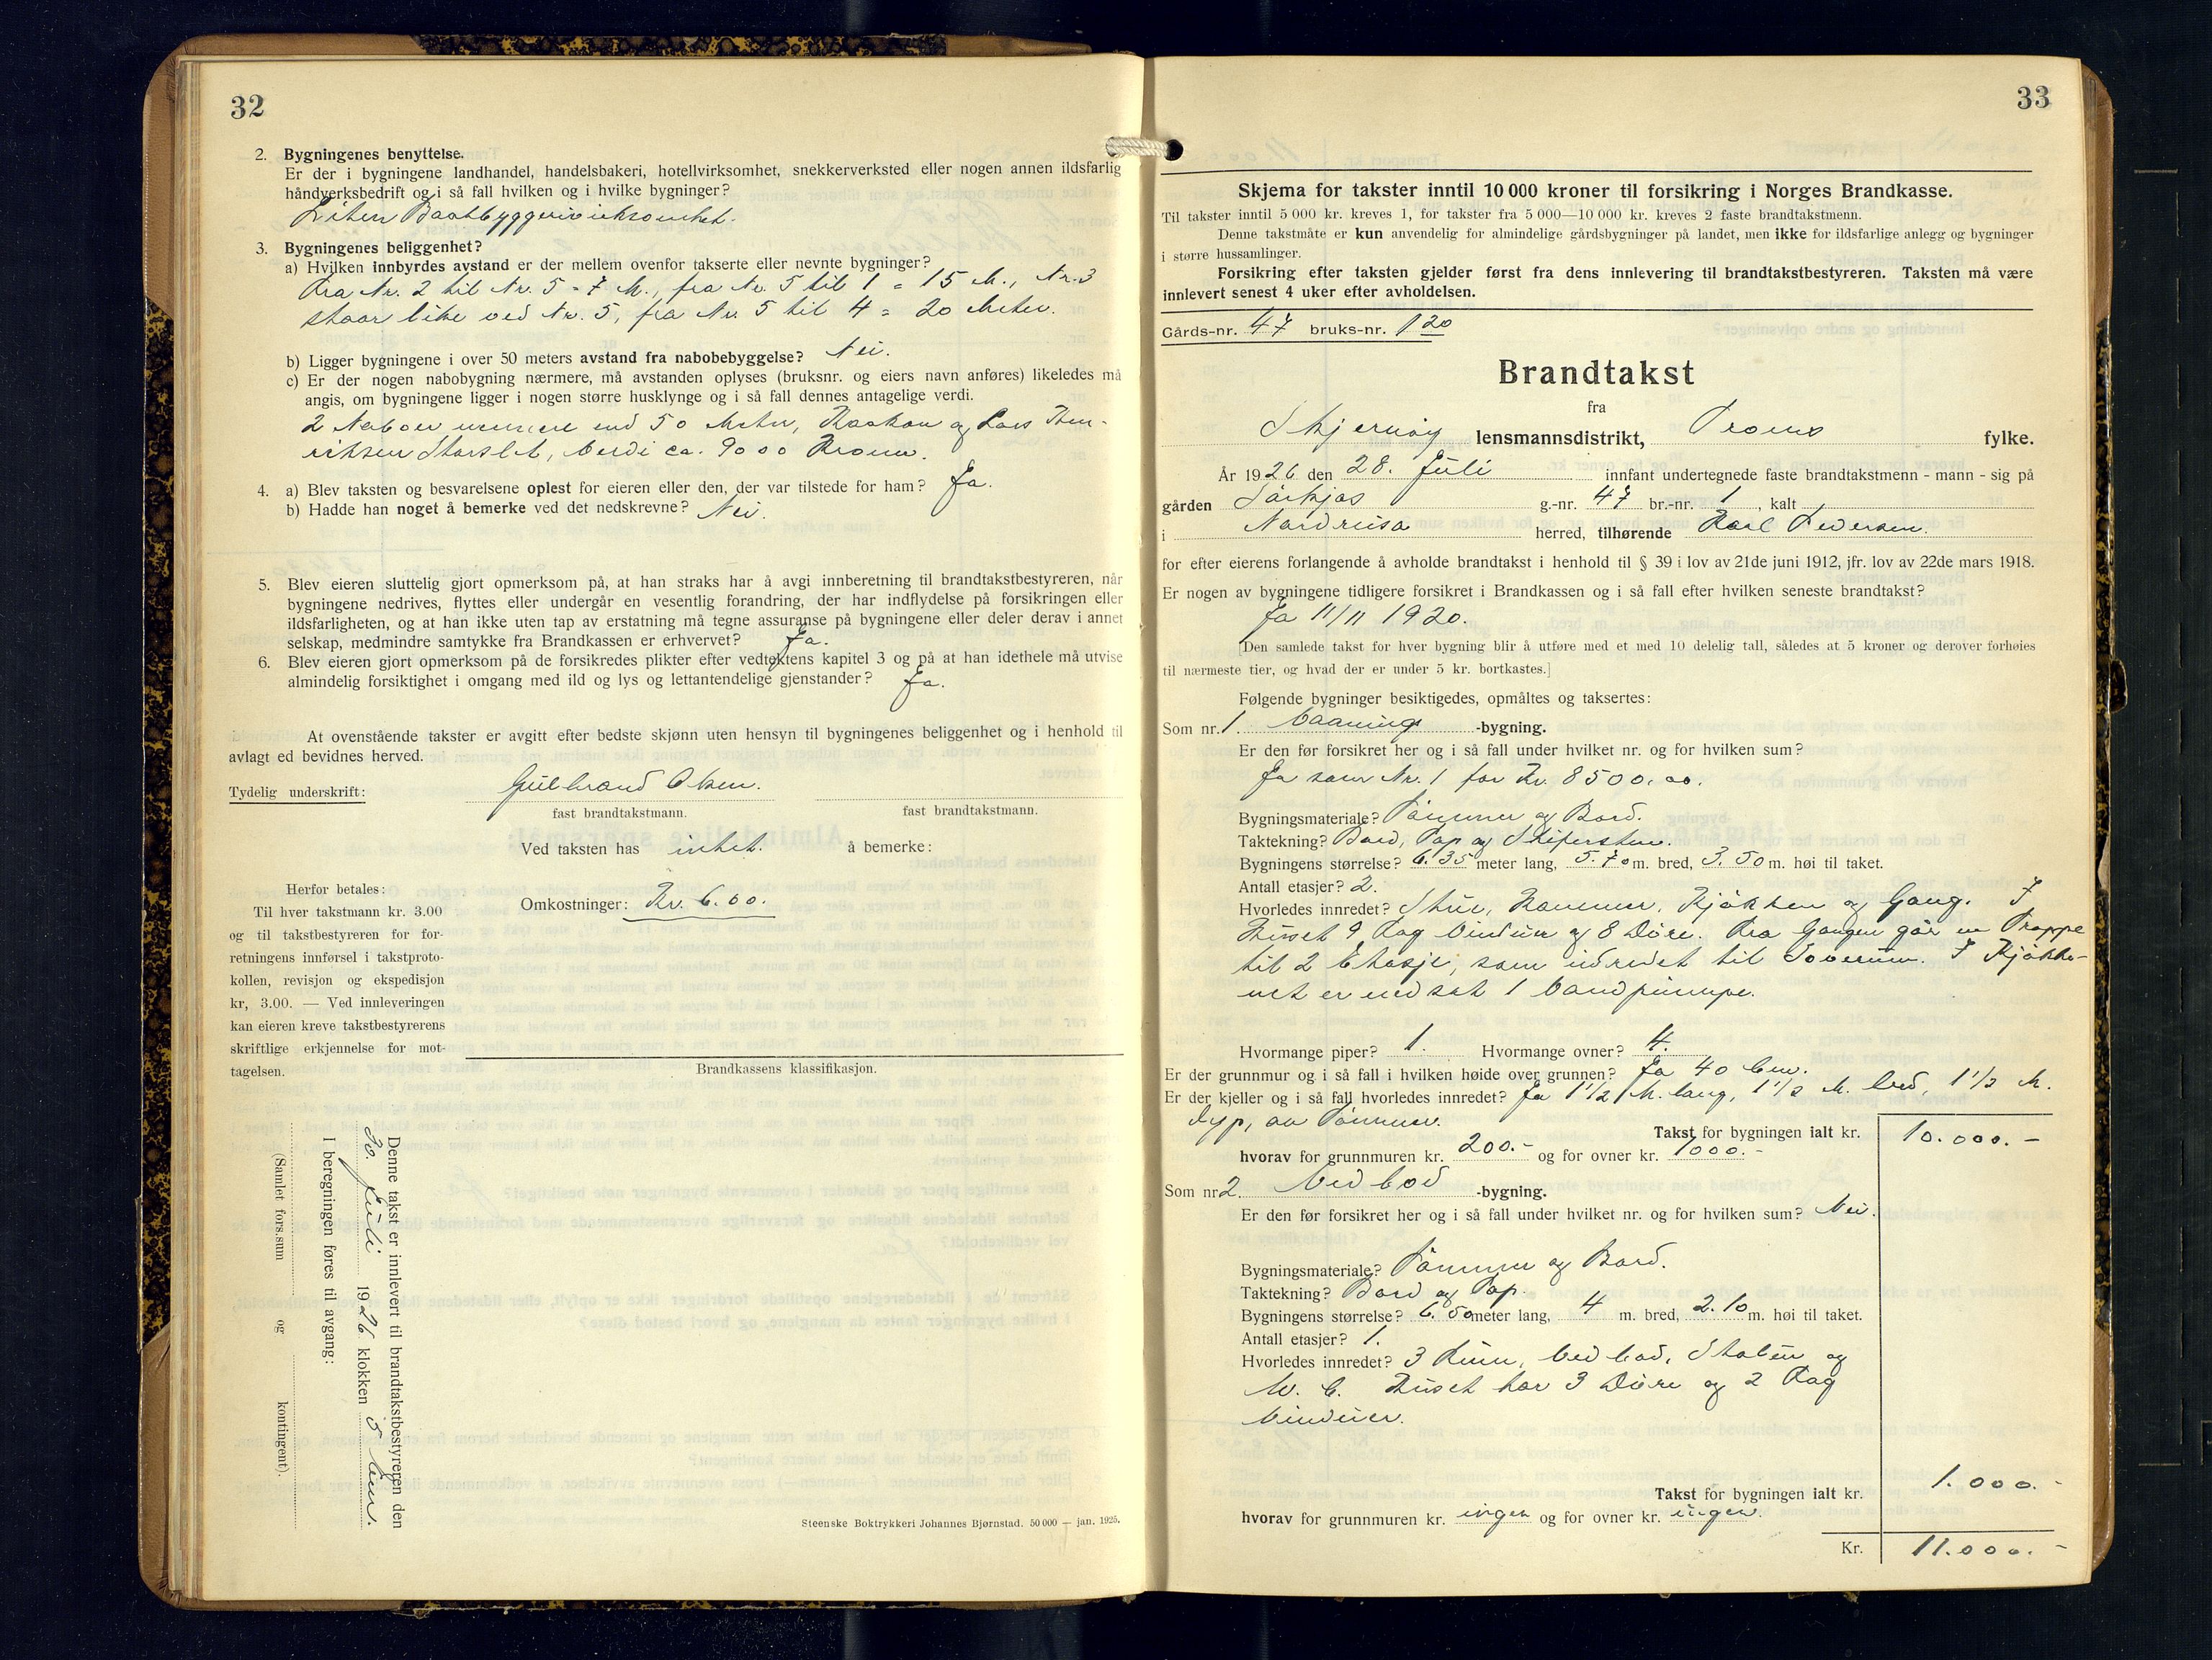 32
2. Bygningenes benyttelse.
Er der i bygningene landhandel, handelsbakeri, hotellvirksomhet, snekkerverksted eller nogen annen ildsfarlig
håndverksbedrift og i så fall hvilken og i hvilke bygninger?
Liten Baatbyggerivirksomhet.
3. Bygningenes beliggenhet?
a) Hvilken innbyrdes avstand er der mellem ovenfor takserte eller nevnte bygninger?
Fra Nr. 2 til Nr. 5 = 7 M., fra Nr. 5 til 1 = 15 M., Nr. 3
staar like ved Nr. 5, fra Nr. 5 til 4 = 20 Meter.
b) Ligger bygningene i over 50 meters avstand fra nabobebyggelse? Nei.
c) Er der nogen nabobygning nærmere, må avstanden oplyses (bruksnr. og eiers navn anføres) likeledes må
angis, om bygningene ligger i nogen større husklynge og i så fall dennes antagelige verdi.
2 Naboer nærmere end 50 Meter, Haakon og Lars Hen-
riksen Storslet, verdi ca. 9000 Kroner.
4. a) Blev taksten og besvarelsene oplest for eieren eller den, der var tilstede for ham? Ja.
b) Hadde han noget å bemerke ved det nedskrevne? Nei.
5. Blev eieren sluttelig gjort opmerksom på, at han straks har å avgi innberetning til brandtakstbestyreren, når
bygningene nedrives, flyttes eller undergår en vesentlig forandring, der har indflydelse på forsikringen eller
ildsfarligheten, og at han ikke uten tap av erstatning må tegne assuranse på bygningene eller deler derav i annet
selskap, medmindre samtykke fra Brandkassen er erhvervet? Ja.
6. Blev eieren gjort opmerksom på de forsikredes plikter efter vedtektens kapitel 3 og på at han idethele må utvise
almindelig forsiktighet i omgang med ild og lys og lettantendelige gjenstander? Ja.
At ovenstående takster er avgitt efter bedste skjønn uten hensyn til bygningenes beliggenhet og i henhold til
avlagt ed bevidnes herved.
Tydelig underskrift: Gulbrand Olsen.
fast brandtakstmann. fast brandtakstmann.
Ved taksten has intet. å bemerke:
Herfor betales:
Til hver takstmann kr. 3.00
og til takstbestyreren for for-
retningens innførsel i takstproto-
kollen, revisjon og ekspedisjon
kr, 3.00. — Ved innleveringen
kan eieren kreve takstbestyrerens
skriftlige erkjennelse for mot-
tagelsen.
Omkostninger: Kr. 6.00.
Brandkassens klassifikasjon.
Denne takst er innlevert til brandtakstbestyreren den
30. Juli 1926 klokken 5 em.
I beregningen føres til avgang:
(Samlet fors.sum og kontingent).
Steenske Boktrykkeri Johannes Bjørnstad. 50 000 — jan. 1925.
33
Skjema for takster inntil 10 000 kroner til forsikring i Norges Brandkasse.
Til takster inntil 5 000 kr. kreves 1, for takster fra 5 000—10 000 kr. kreves 2 faste brandtakstmenn.
Denne takstmåte er kun anvendelig for almindelige gårdsbygninger på landet, men ikke for ildsfarlige anlegg og bygninger
i større hussamlinger.
Forsikring efter taksten gjelder først fra dens innlevering til brandtakstbestyreren. Taksten må være
innlevert senest 4 uker efter avholdelsen.
Gårds-nr. 47 bruks-nr. 1 20
Brandtakst
fra
Skjervøy lensmannsdistrikt, Troms fylke.
År 1926 den 28. Juli innfant undertegnede faste brandtakstmenn - mann - sig på
gården Sørkjos g.-nr. 47 br.-nr. 1, kalt
i Nordreisa herred, tilhørende Karl Pedersen.
for efter eierens forlangende å avholde brandtakst i henhold til § 39 i lov av 21de juni 1912, jfr. lov av 22de mars 1918.
Er nogen av bygningene tidligere forsikret i Brandkassen og i så fall efter hvilken seneste brandtakst?
Ja 11/11 1920.
[Den samlede takst for hver bygning blir å utføre med et med 10 delelig tall, således at 5 kroner og derover forhøies
til nærmeste tier, og hvad der er under 5 kr. bortkastes.]
Følgende bygninger besiktigedes, opmåltes og taksertes:
Som nr. 1. Vaanings -bygning.
Er den før forsikret her og i så fall under hvilket nr. og for hvilken sum?
Ja som Nr. 1 for Kr. 8500.00.
Bygningsmateriale? Tømmer og Bord.
Taktekning? Bord, Pap og Skifersten.
Bygningens størrelse? 6.35 meter lang, 5.70 m. bred, 3.50 m. høi til taket.
Antall etasjer? 2.
Hvorledes innredet? Stue, Kammer, Kjøkken og Gang. I
Huset 9 Fag Vinduer og 8 Døre. Fra Gangen går en Trappe
til 2 Etasje, som indredet til Soverum. I Kjøkke-
net er nedsat 1 Vandpumpe.
Hvormange piper? 1. Hvormange ovner? 4.
Er der grunnmur og i så fall i hvilken høide over grunnen? Ja 40 Cm.
Er der kjeller og i så fall hvorledes innredet? Ja 1 1/2 M. lang, 1 1/2 M. bred, 1 1/2 M.
dyp, av Tømmer.
Takst for bygningen ialt kr. 10.000.-
hvorav for grunnmuren kr. 200.- og for ovner kr. 1000.-
Som nr 2. Vedbod -bygning.
Er den før forsikret her og i så fall under hvilket nr. og for hvilken sum? Nei.
Bygningsmateriale? Tømmer og Bord.
Taktekning? Bord og Pap.
Bygningens størrelse? 6.50 meter lang, 4 m. bred, 2.10 m. høi til taket.
Antall etasjer? 1.
Hvorledes innredet? 3 Rum, Vedbod, Stabur og
W. C. Huset har 3 Døre og 2 Fag
Vinduer.
Takst for bygningen ialt kr. 1.000.-
hvorav for grunnmuren kr. ingen og for ovner kr. ingen.
Kr. 11.000.-